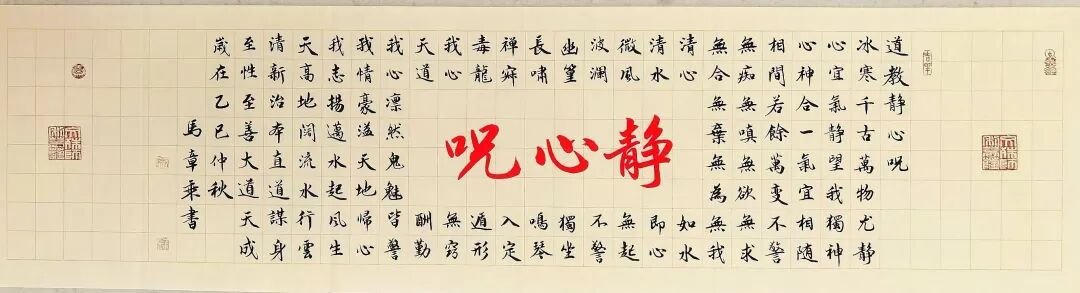 道教静心呪
冰寒千古萬物尤静
心宜氣静望我獨神
心神合一氣宜相随
相間若餘萬變不警
無痴無嗔無欲無求
無合無棄無為無我
清心如水
清水即心
微風無起
波澜不警
幽篁獨坐
長嘯鳴琴
禅寐入定
毒龍遁形
我心無窍
天道酬勤
静心呪
我心凛然鬼魅皆警
我情豪溢天地歸心
我志揚邁水起風生
天高地闊流水行雲
清新治本直道謀身
至性至善大道天成
歲在乙巳仲秋
馬章乘書